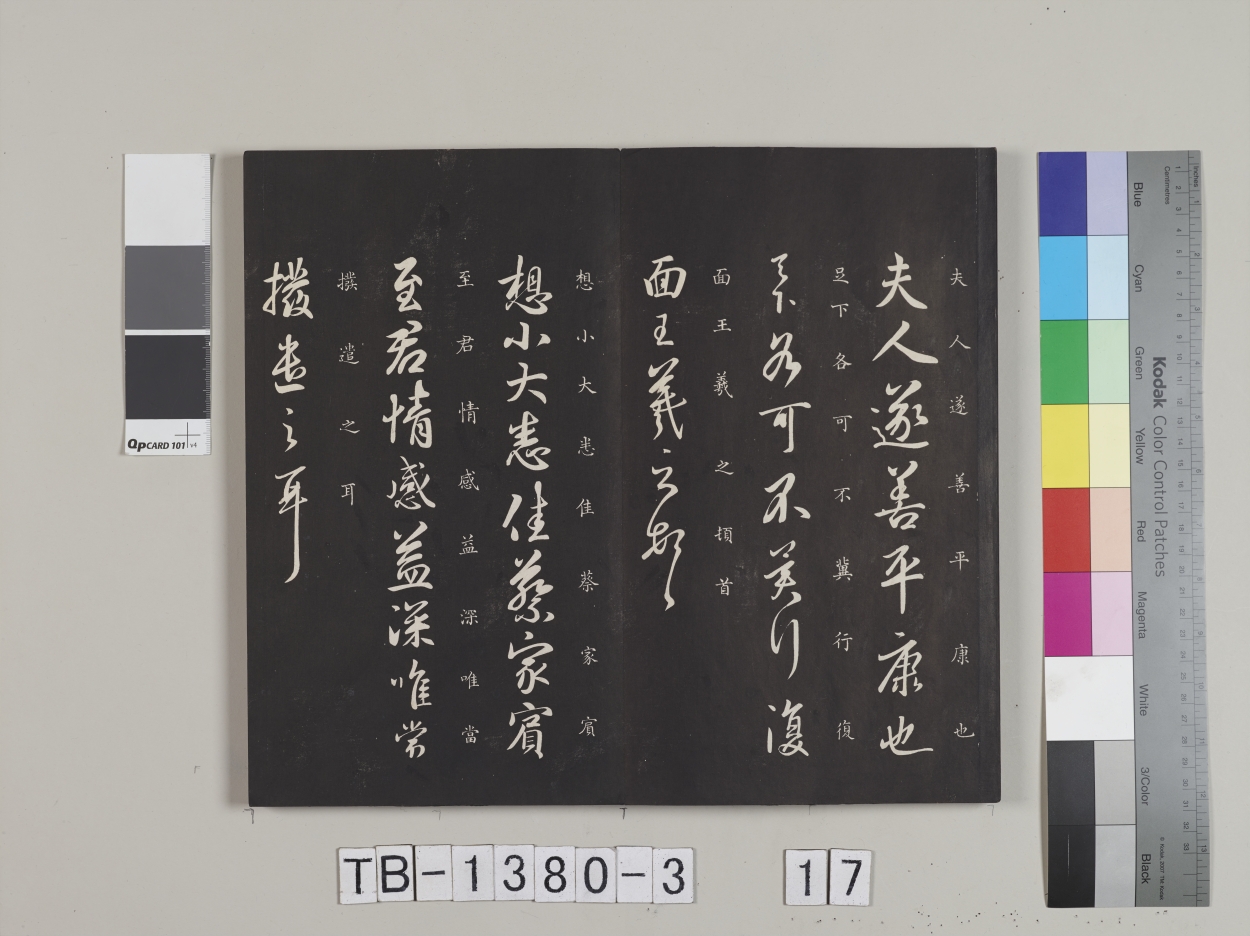 夫人遂善平康也
夫人遂善平康也
足下各可不冀行復
足下各可不冀行復
面王羲之頓首
面王羲之頓首
想小大恚佳蔡家賔
想小大恚佳蔡家賔
至君情感益深唯當
至君情感益深唯當
撥遣之耳
撥遣之耳
QPCARD 101 v4
TB-1380-3 17
Kodak Color Control Patches
Blue
Cyan
Green
Yellow
Red
Magenta
White
3/Color
Black
Inches
Centimetres